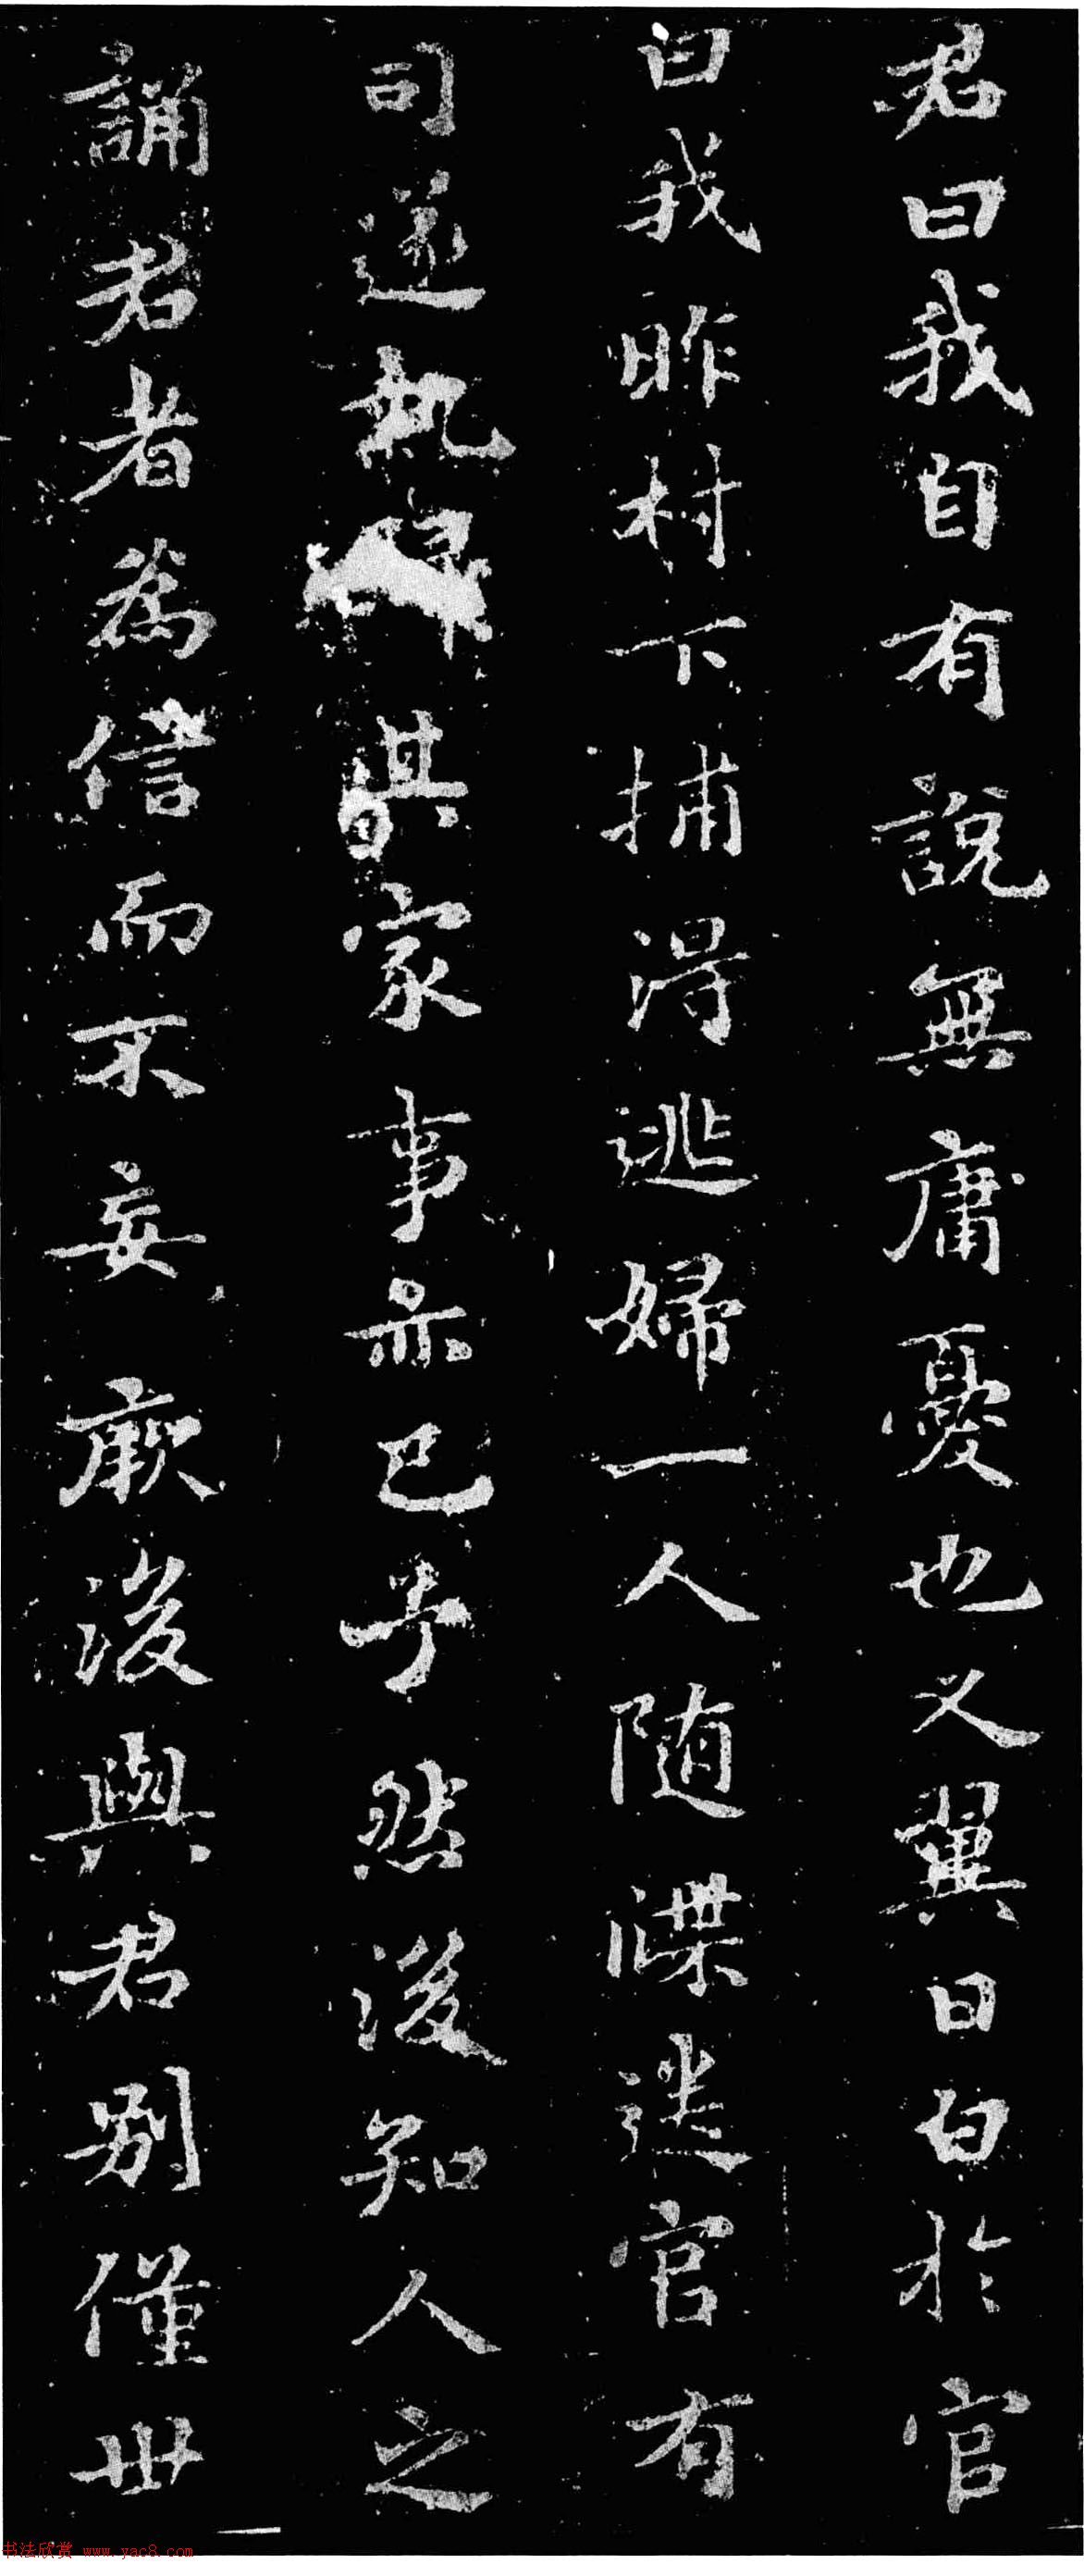 君曰我自有說無庸憂也又翼日白於官
曰我昨村下捕得逃婦一人隨牒送官有
司遂執歸其家事亦已乎然後知人之
誦君者為信而不妄厥後與君別僅丗
书法欣赏 www.yac8.com